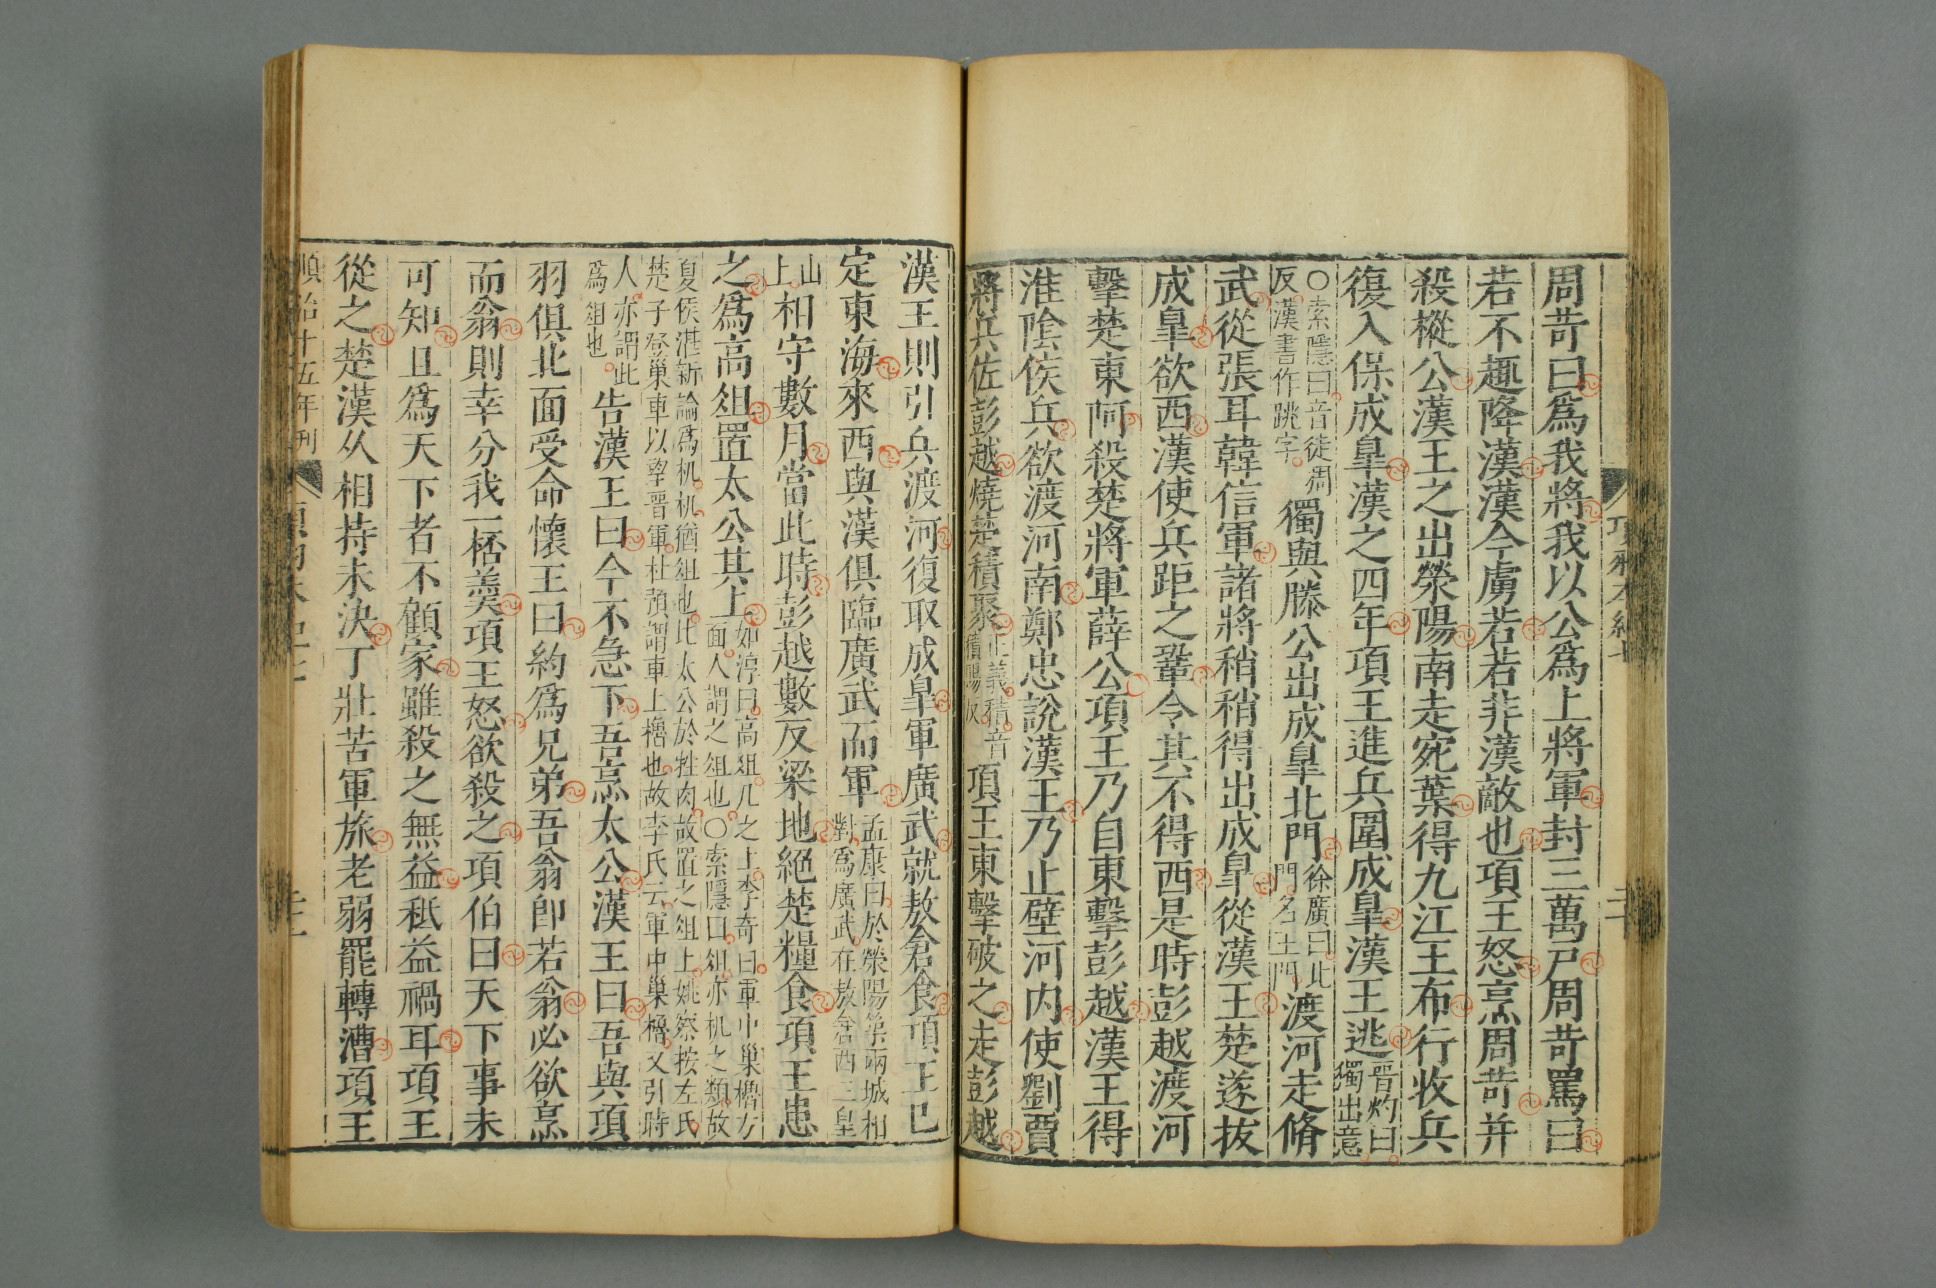 項羽本紀七
周苛曰爲我將我以公爲上將軍封三萬戸周苛罵曰
若不趣降漢漢今虜若若非漢敵也項王怒烹周苛并
殺樅公漢王之出滎陽南走宛葉得九江王布行收兵
復入保成臯漢之四年項王進兵圍成臯漢王逃晋灼曰獨出意
○索隱曰音徒凋反漢書作跳字獨與滕公出成臯北門徐廣曰此門名王門渡河走脩
武從張耳韓信軍諸將稍稍得出成臯從漢王楚遂拔
成臯欲西漢使兵距之鞏令其不得西是時彭越渡河
擊楚東阿殺楚將軍薛公項王乃自東擊彭越漢王得
淮陰侯兵欲渡河南鄭忠說漢王乃止壁河内使劉賈
將兵佐彭越燒楚積聚正義積音積賜反項王東擊破之走彭越
漢王則引兵渡河復取成臯軍廣武就敖倉食項王已
定東海來西與漢俱臨廣武而軍孟康曰於滎陽築兩城相對爲廣武在敖倉西三皇
山上相守數月當此時彭越數反梁地絕楚糧食項王患
之爲高俎置太公其上如淳曰高俎几之上李奇曰軍中巢櫓方面人謂之俎也○索隱曰俎亦机之類故
夏侯湛新論爲机机猶俎也比太公於牲肉故置之俎上姚察按左氏楚子登巢車以望晋軍杜預謂車上櫓也故李氏云軍中巢櫓又引時
人亦謂此爲俎也告漢王曰今不急下吾烹太公漢王曰吾與項
羽俱北面受命懷王曰約爲兄弟吾翁卽若翁必欲烹
而翁則幸分我一桮羹項王怒欲殺之項伯曰天下事未
可知且爲天下者不顧家雖殺之無益秪益禍耳項王
從之楚漢从相持未決丁壯苦軍旅老弱罷轉漕項王
順治十五年刊